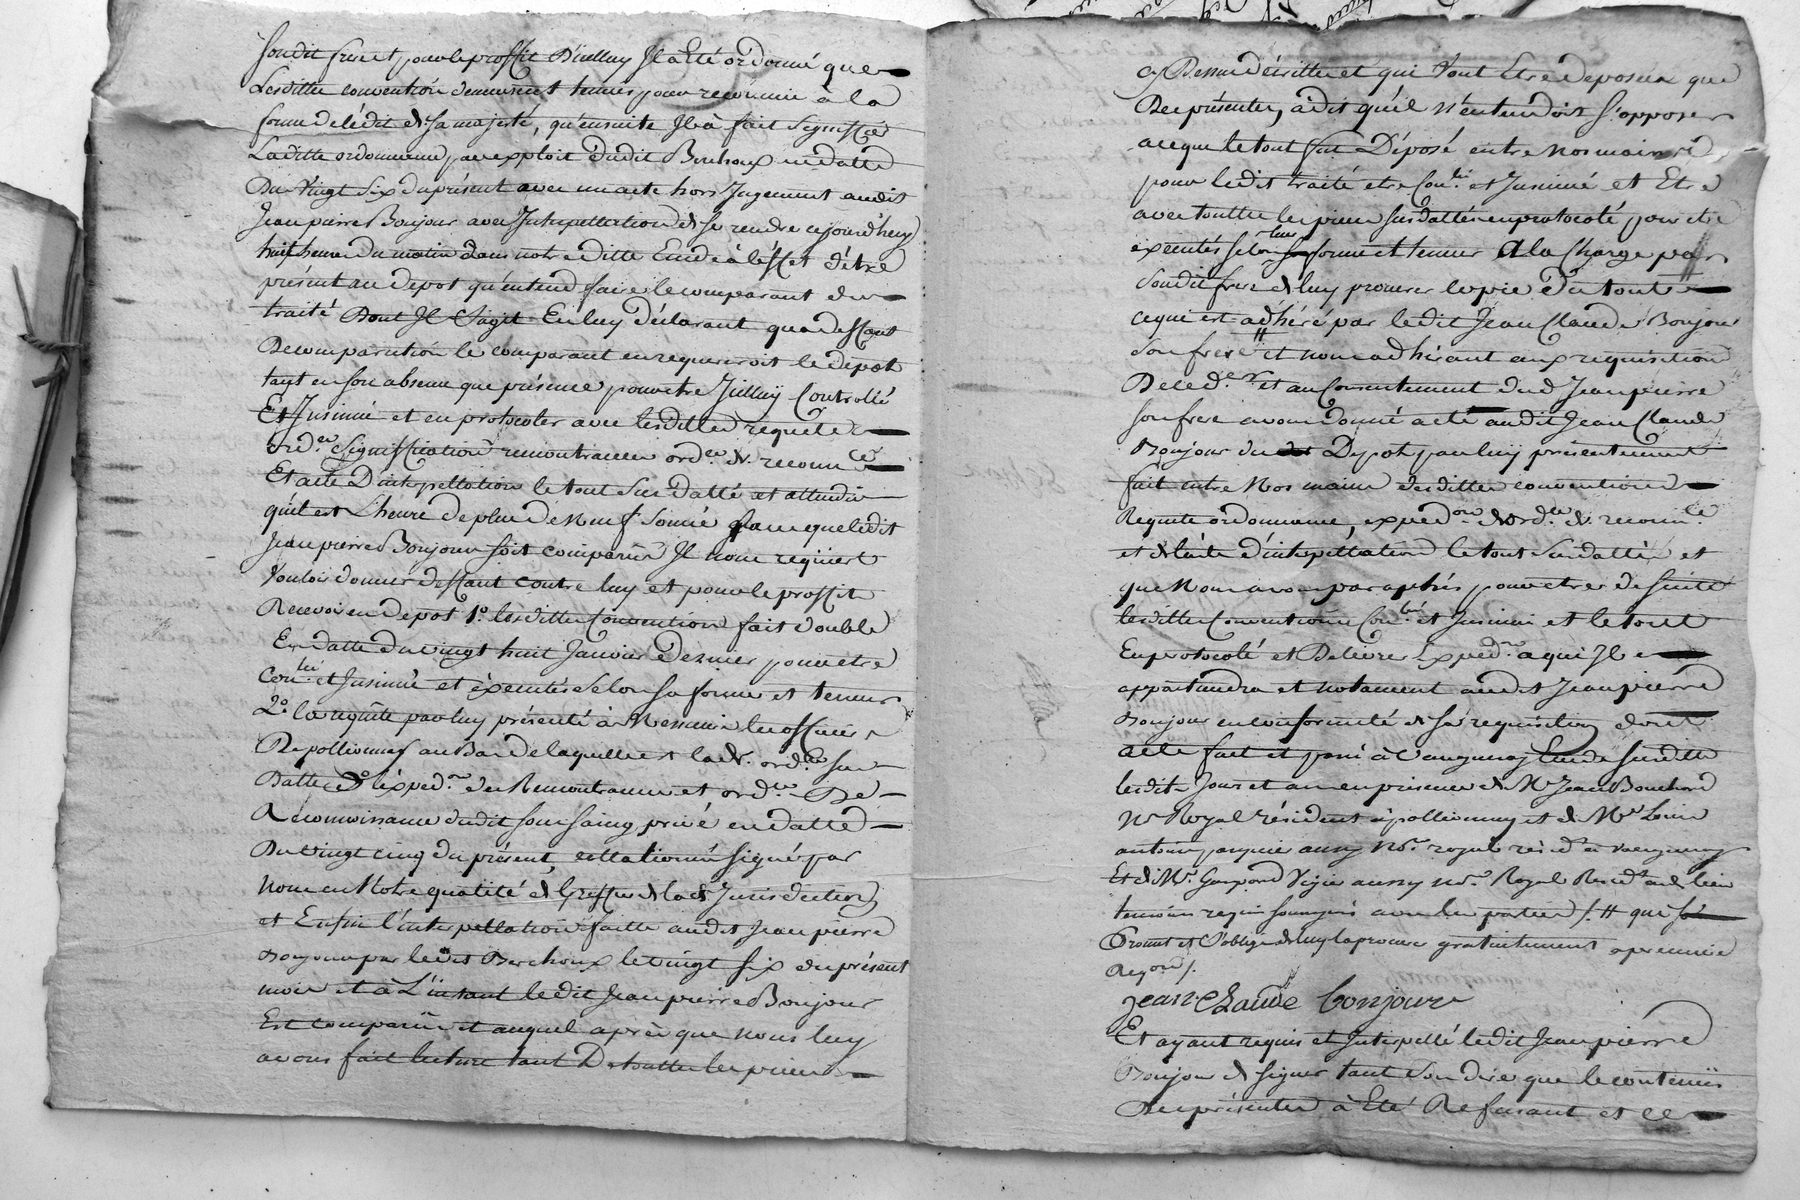 sondit frere et pour le proffit D'icelluy Il a Eté ordonné que
Lesdittes convention demeurent tenues pour reconnue à la
forme de lédit de sa majesté, qu'ensuite Il à fait Signiffier
Laditte ordonnance par exploit dudit Berchoux en datte
Du Vingt Six du présent avec un acte hors Jugement audit
Jean pierre Bonjour avec Interpellation de se rendre cejourd'huy
huit heure du matin dans notre ditte Etude à l'éffet d'être
présent au depot qu'entend faire le comparant du
traité Dont Il Sagit En luy déclarant qua deffaut
De comparution le comparant en requerroit le depot
tant en son absence que présence pour etre Icelluy Controllé
Et Insinué et en protocoler avec lesdittes requéte
ord.ce Signiffication remontrance ord.ce de reconn.ce
Et acte D'interpellation le tout Sus datté et attendu
qu'il est L'heure de plus de Neuf Sonné sans que ledit
Jean pierre Bonjour soit comparu Il nous requiert
Vouloir donner deffaut contre luy et pour le proffit
Recevoir en depot 1.o lesdittes Convention fait double
En datte du vingt huit Janvier dernier pour etre
Con.lé et Insinué et éxécutés Selon sa forme et teneur
2.o la requéte par luy présenté à Messieurs les officiers
De pollionnay au Bas de laquelle est lad. ord.ce Sus
Datte 3.o l'éxped.on des Remontrance et ord.ce De
Reconnoissance dudit sous saing privé en datte
Du vingt cinq du présent, collationnée signé par
nous en Notre qualité de Greffier de lad. Jurisdiction
et Enfin l'interpellation faitte audit Jean pierre
Bonjour par ledit Berchoux le vingt six du présent
mois et à L'instant ledit Jean pierre Bonjour
Est comparu et auquel après que nous luy
avons fait lecture tant Desdittes pieces
cy Dessus décritte et qui Vont Etre deposée que
Des présentes, à dit qu'il N'entendoit s'opposer
ace que le tout fut Déposé entre nos mains
pour ledit traité etre Con.lé et Insinué et Etre
avec touttes les pieces susdattée en protocolé pour etre
éxécutés selon leurs forme et teneur a la Charge par
Sondit frere de luy procurer copie du tout
ce qui est adhéré par ledit Jean Claude Bonjour
Son frere # et nous adhérant aux requisition
De ced.r et au Consentement dud. Jean pierre
son frere avons donné acte audit Jean Claude
Bonjour du Depot par luy présentement
fait entre Nos mains desdittes convention
Requéte ordonnance, exped.on de ord.ce de reconn.ce
et de l'acte d'interpellation le tout Sus datté et
que Nous avons paraphés pour etre de suite
lesdittes Convention Con.lé et Insinué et le tout
En protocolé et Delivré Exped.on a qui Il
appartiendra et notament audit Jean pierre
Bonjour en conformité de sa requisition dont
acte fait et passé à Vaugneray Etude susditte
lesdits Jour et an en présence de M.e Jean Bouchard
N.re Royal résident à pollionnay et de M.e Louis
antoine aussy No.re royal résid.t a Vaugneray
Et de M.e Gaspard aussy no.re Royal Resid.t aud. lieu
temoins requis soussignés avec les parties /. # que
Promet et s'oblige de luy la procurer gratuitement a premiere
Requis.on /.
jean Claude bonjour
Et ayant requis et Interpellé ledit Jean pierre
Bonjour de signer tant Son dire que le contenu
Des présentes à Eté Refusant et ce